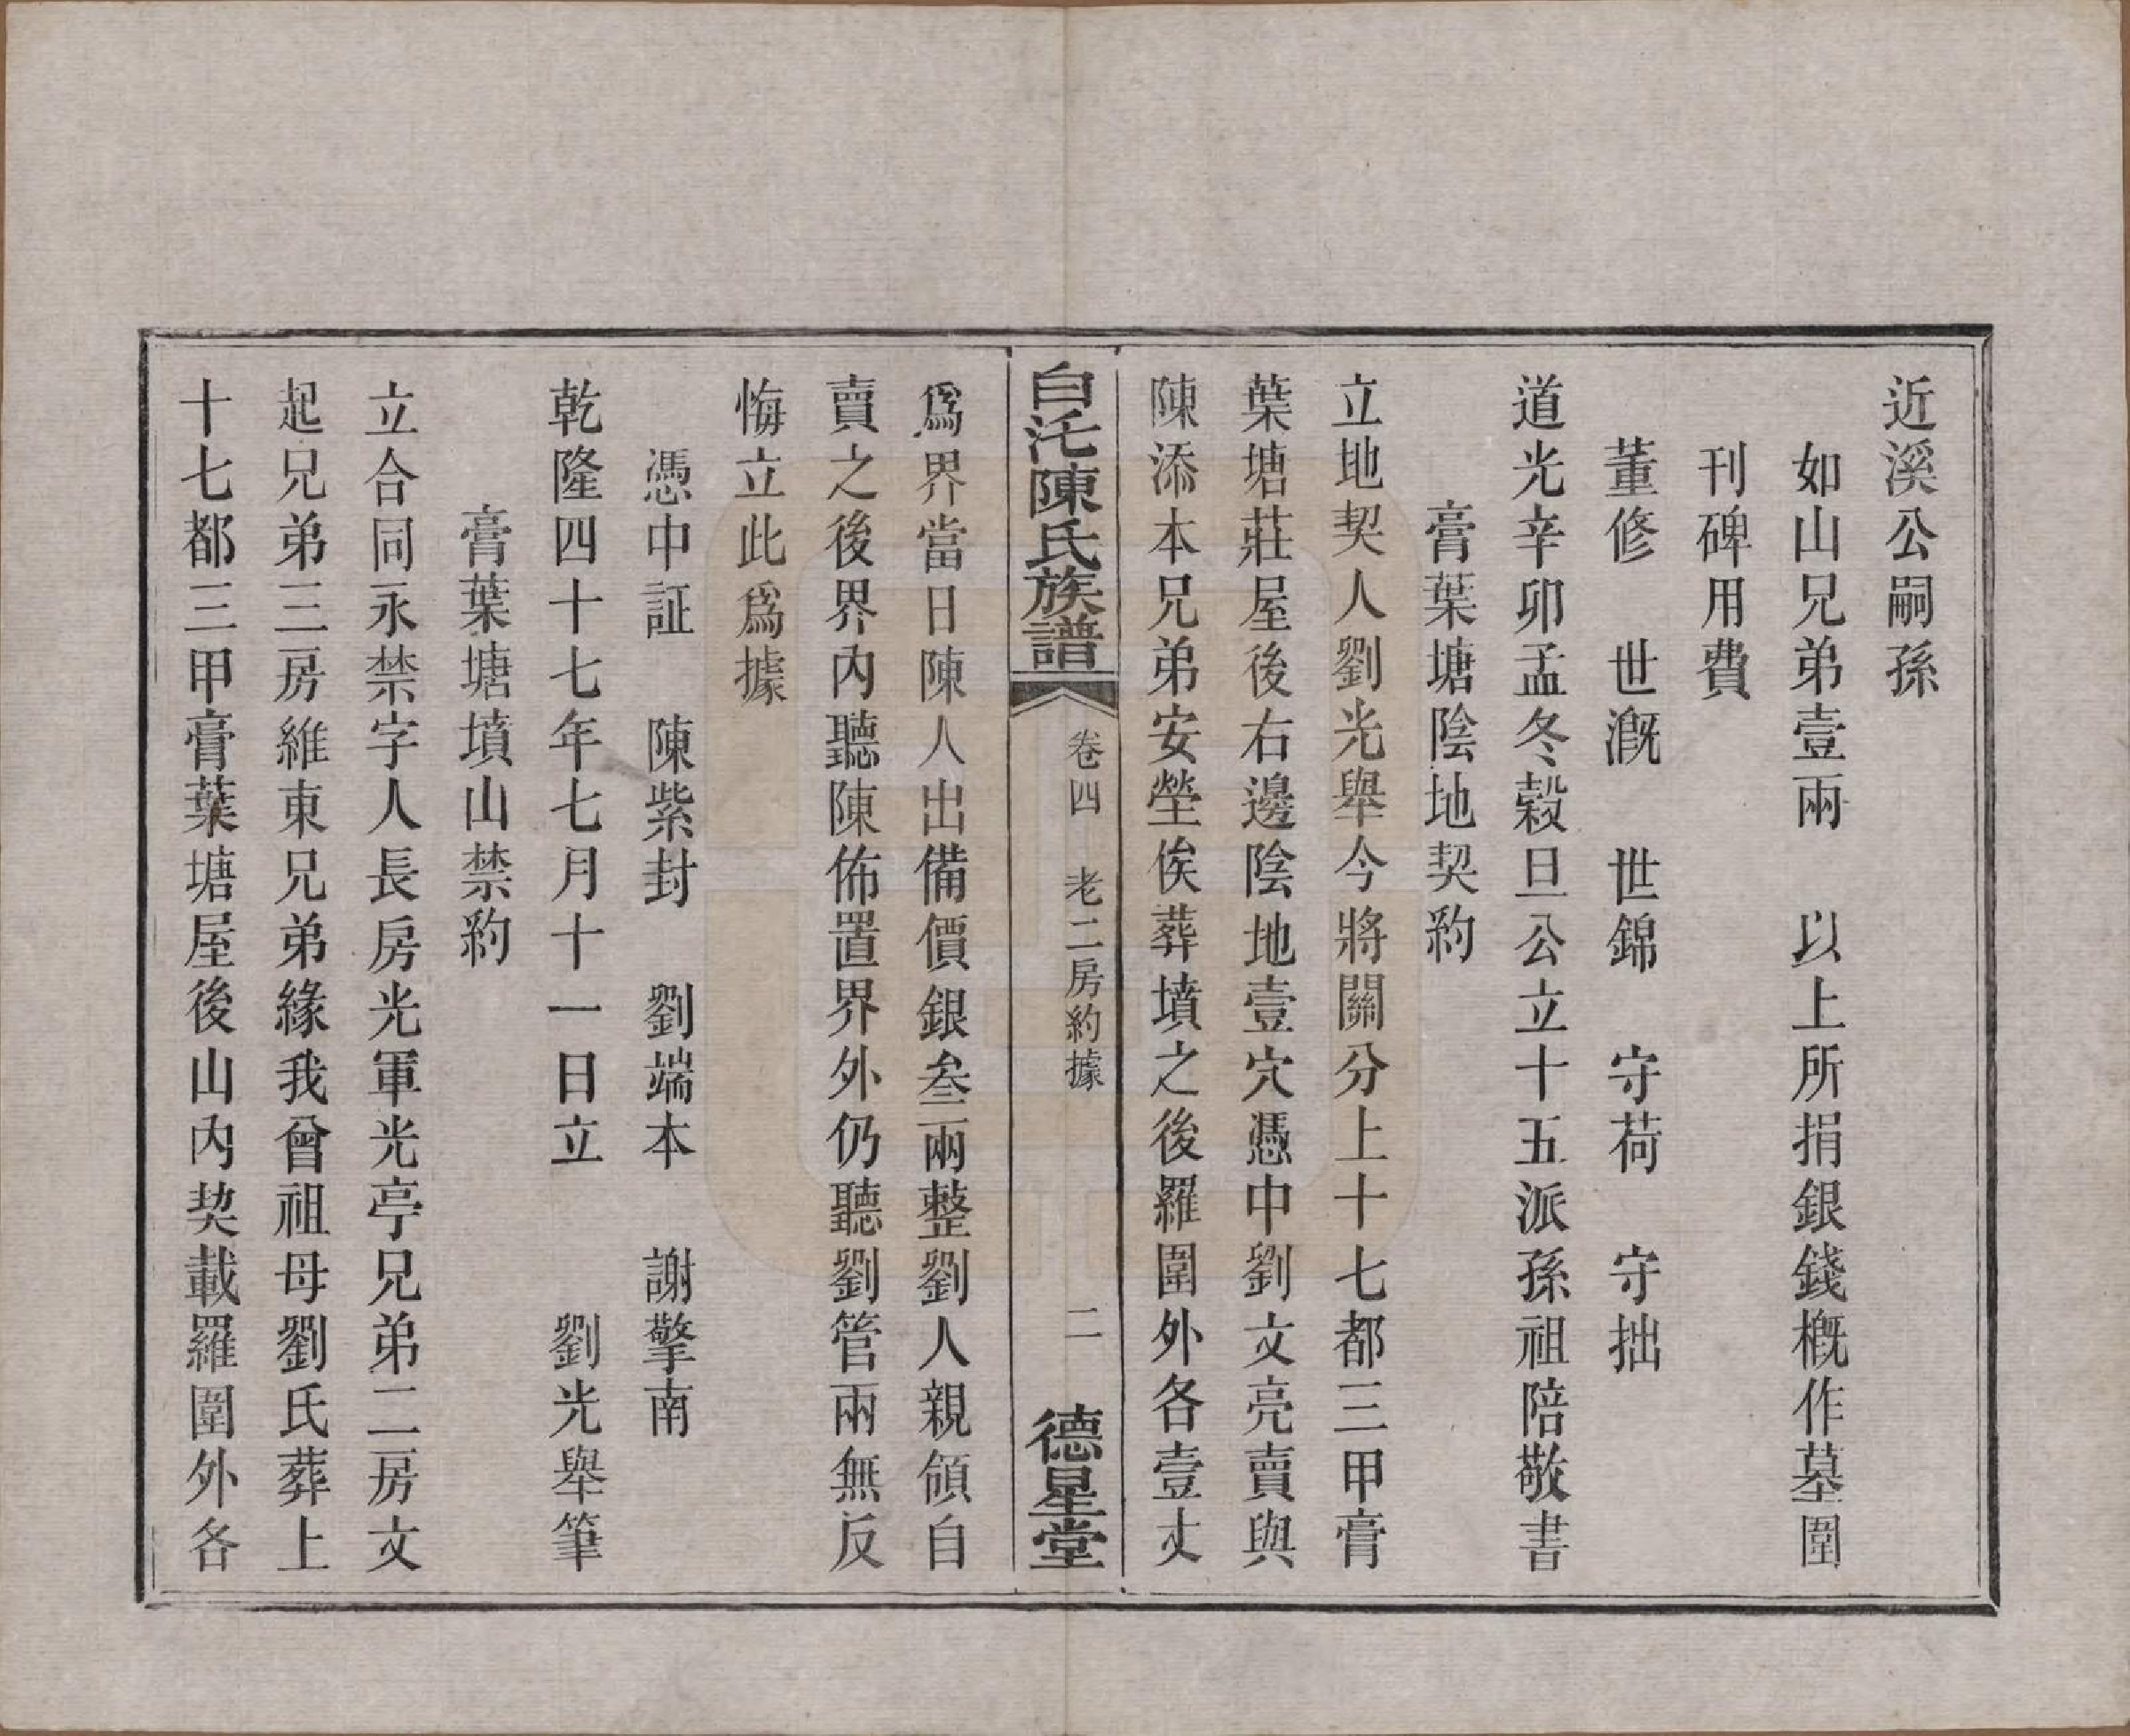 近溪公嗣孫
如山兄弟壹兩　以上所捐銀錢概作墓圍
刊碑用費
董修　世溉　世錦　守荷　守拙
道光辛卯孟冬榖旦公立十五派孫祖陪敬書
膏葉塘陰地契約
立地契人劉光舉今將關分上十七都三甲膏
葉塘莊屋後右邊陰地壹穴憑中劉文亮賣與
陳添本兄弟安塋俟葬墳之後羅圍外各壹丈
白沱陳氏族譜　卷四　老二房約據　二　德星堂
爲界當日陳人出備價銀叁兩整劉人親領自
賣之後界內聽陳佈置界外仍聽劉管兩無反
悔立此爲據
憑中証　陳紫封　劉端本　謝擎南
乾隆四十七年七月十一日立　劉光舉筆
膏葉塘墳山禁約
立合同永禁字人長房光軍光亭兄弟二房文
起兄弟三房維東兄弟緣我曾祖母劉氏葬上
十七都三甲膏葉塘屋後山內契載羅圍外各